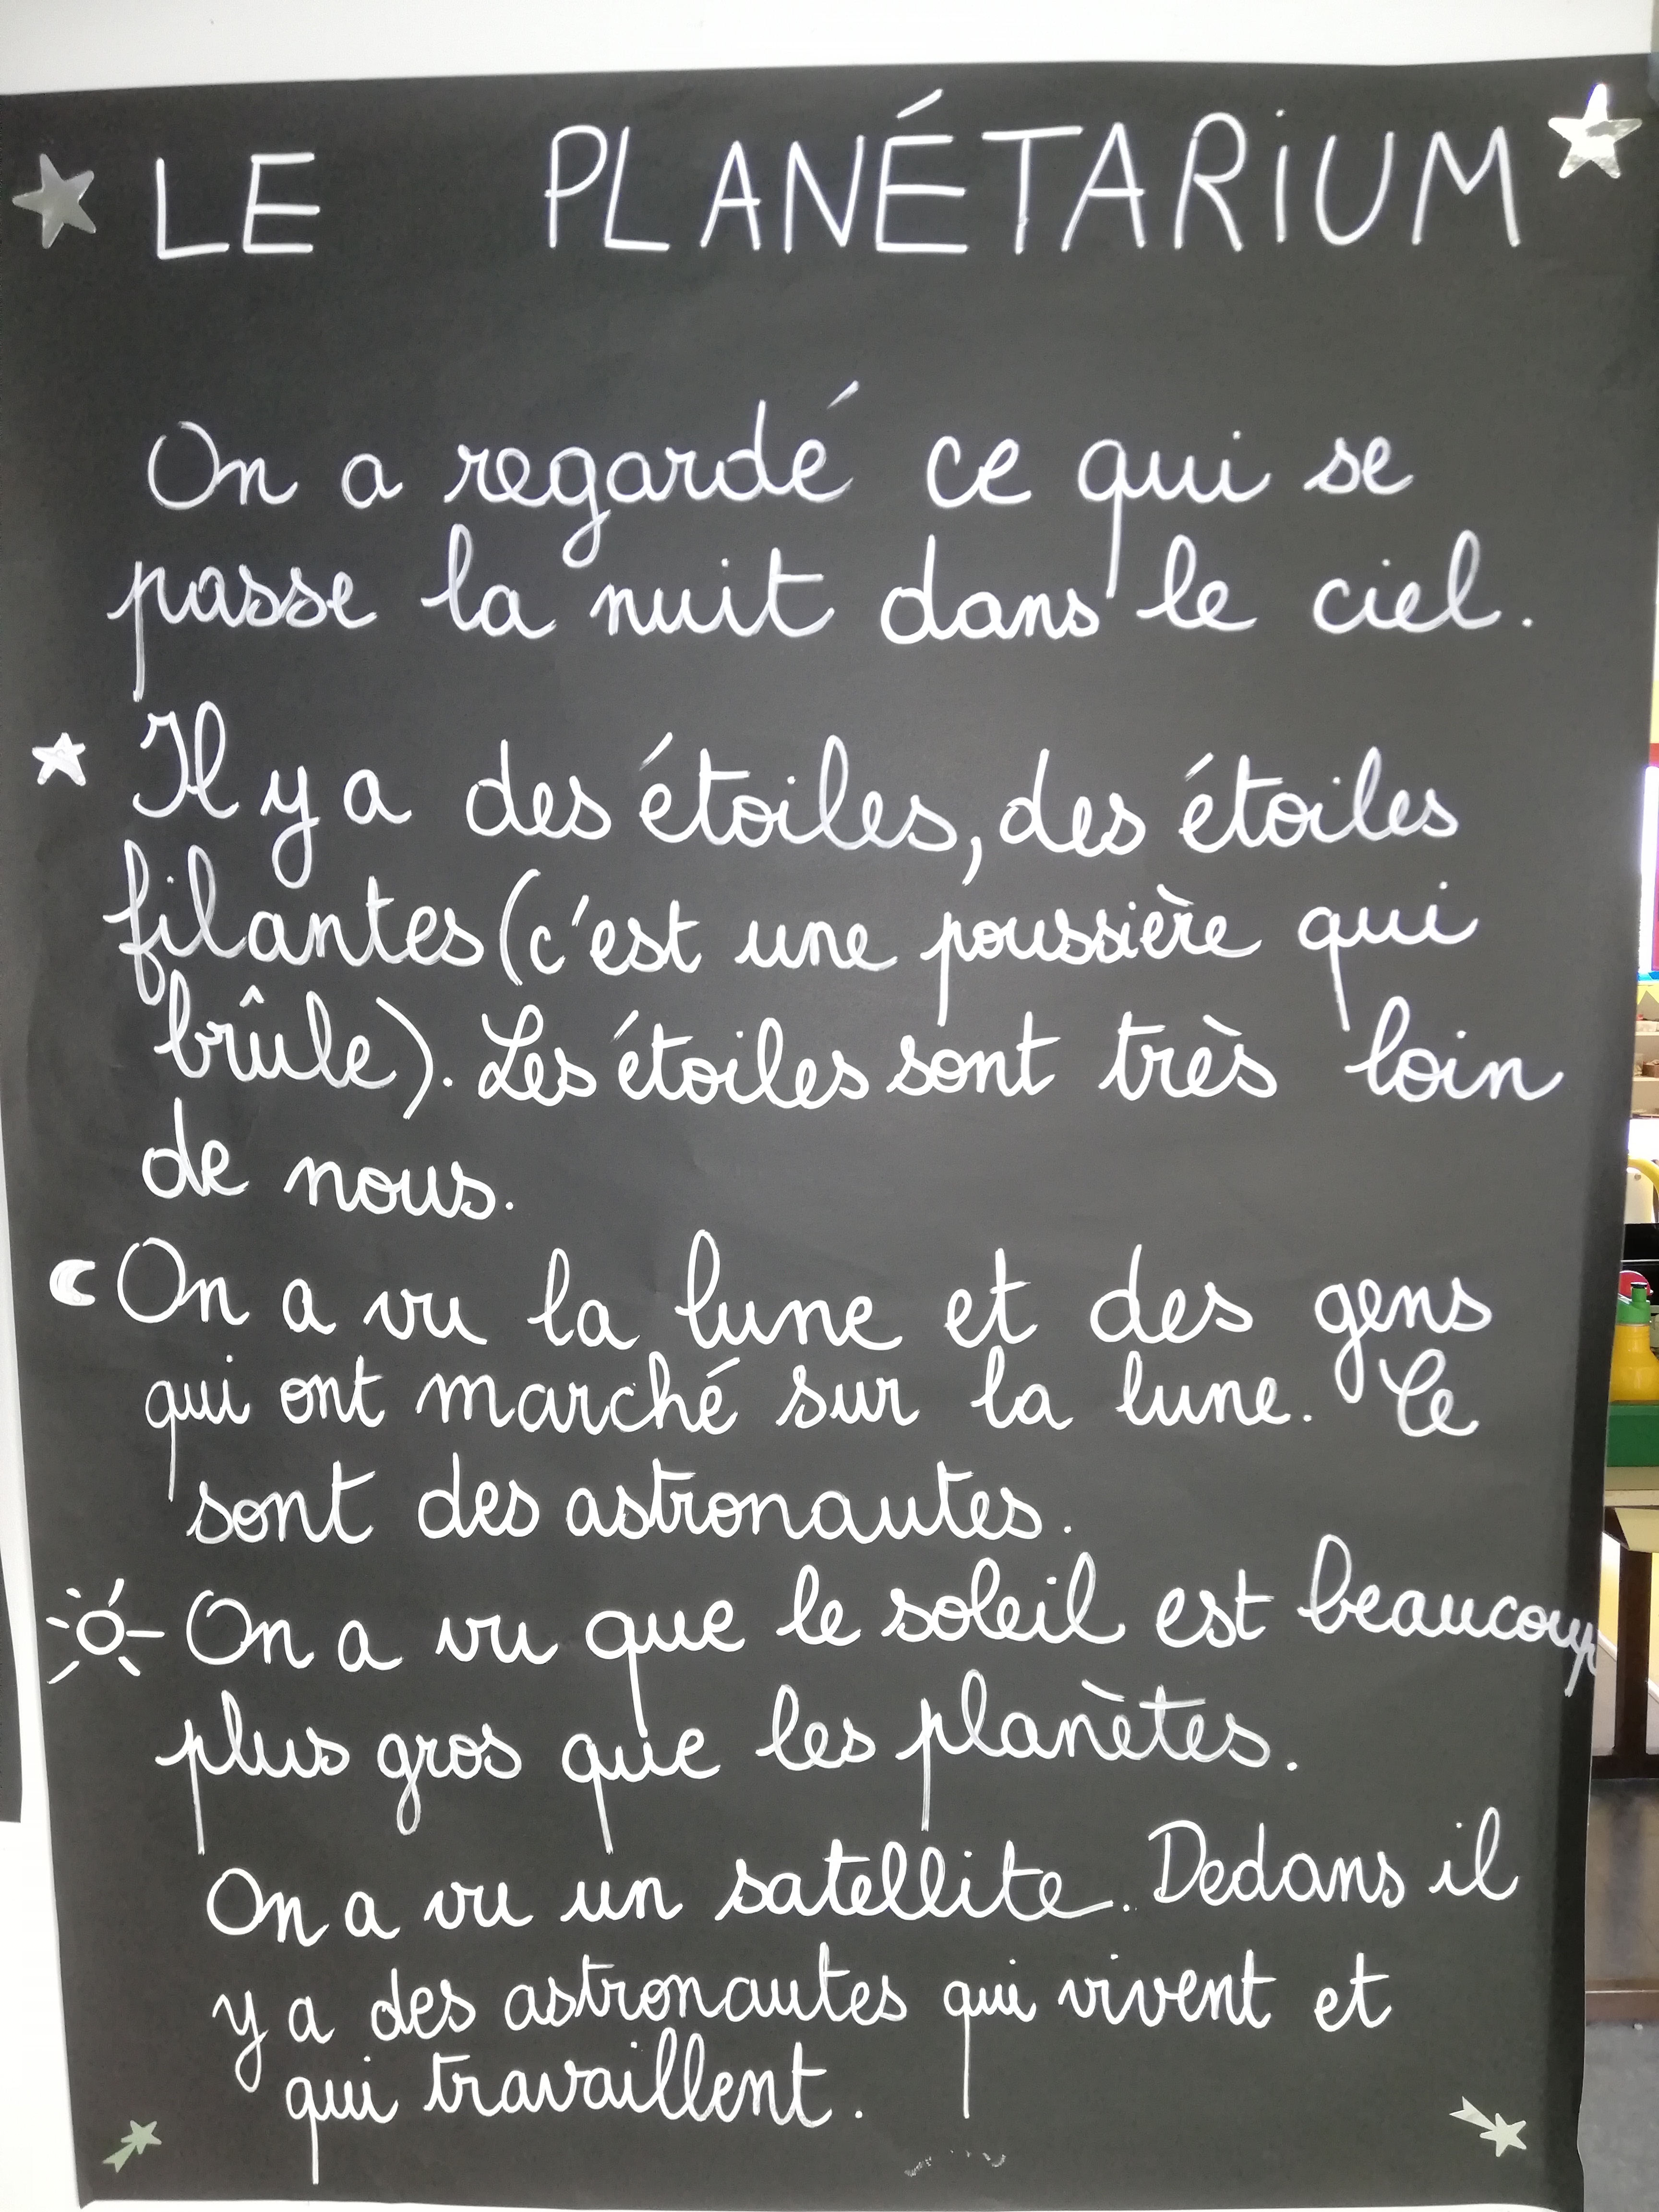 LE PLANÉTARIUM
On a regardé ce qui se
passe la nuit dans le ciel.
Il y a des étoiles, des étoiles
filantes (c'est une poussière qui
brûle). Les étoiles sont très loin
de nous.
On a vu la lune et des gens
qui ont marché sur la lune. Ce
sont des astronautes.
On a vu que le soleil est beaucoup
plus gros que les planètes.
On a vu un satellite. Dedans il
y a des astronautes qui vivent et
qui travaillent.